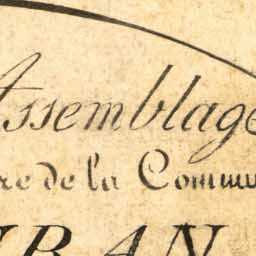 Assemblage
re de la Commu
URAN